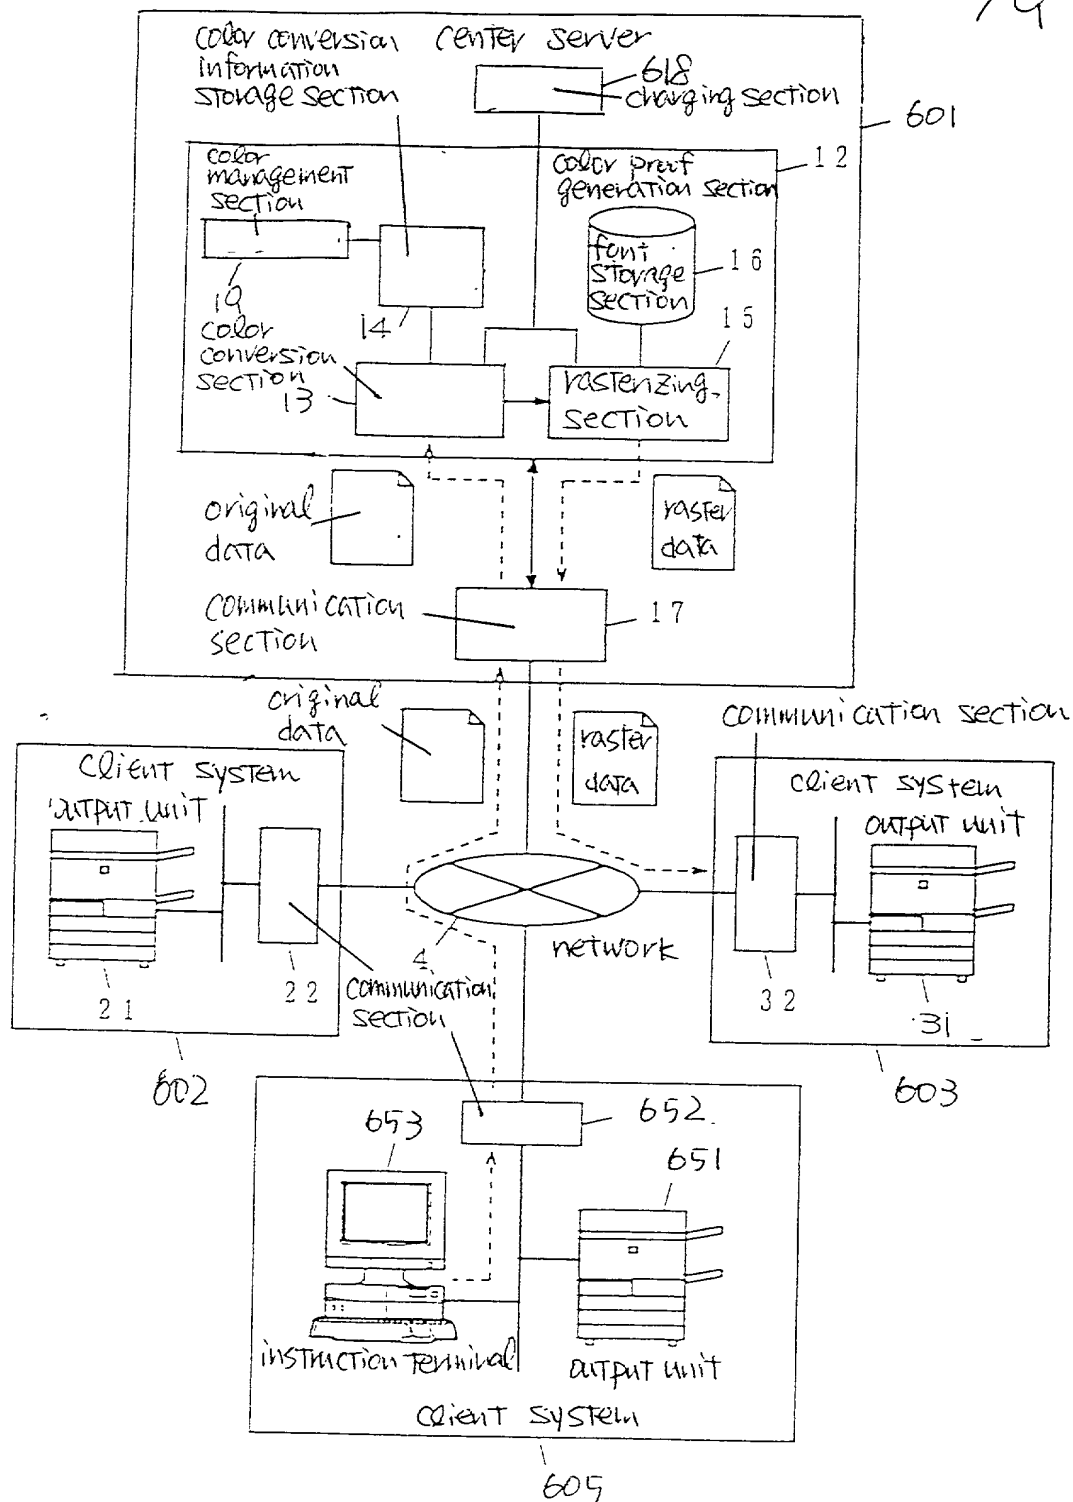 color conversion
information
storage section
center server
618
charging section
601
12
color
management
section
color proof
generation section
font
storage
section
16
19
14
15
color
conversion
section
13
rasterizing
section
original
data
raster
data
communication
section
17
original
data
raster
data
communication section
client system
output unit
21
22
602
4
network
communication
section
client system
output unit
32
31
603
653
652
651
instruction terminal
output unit
client system
605